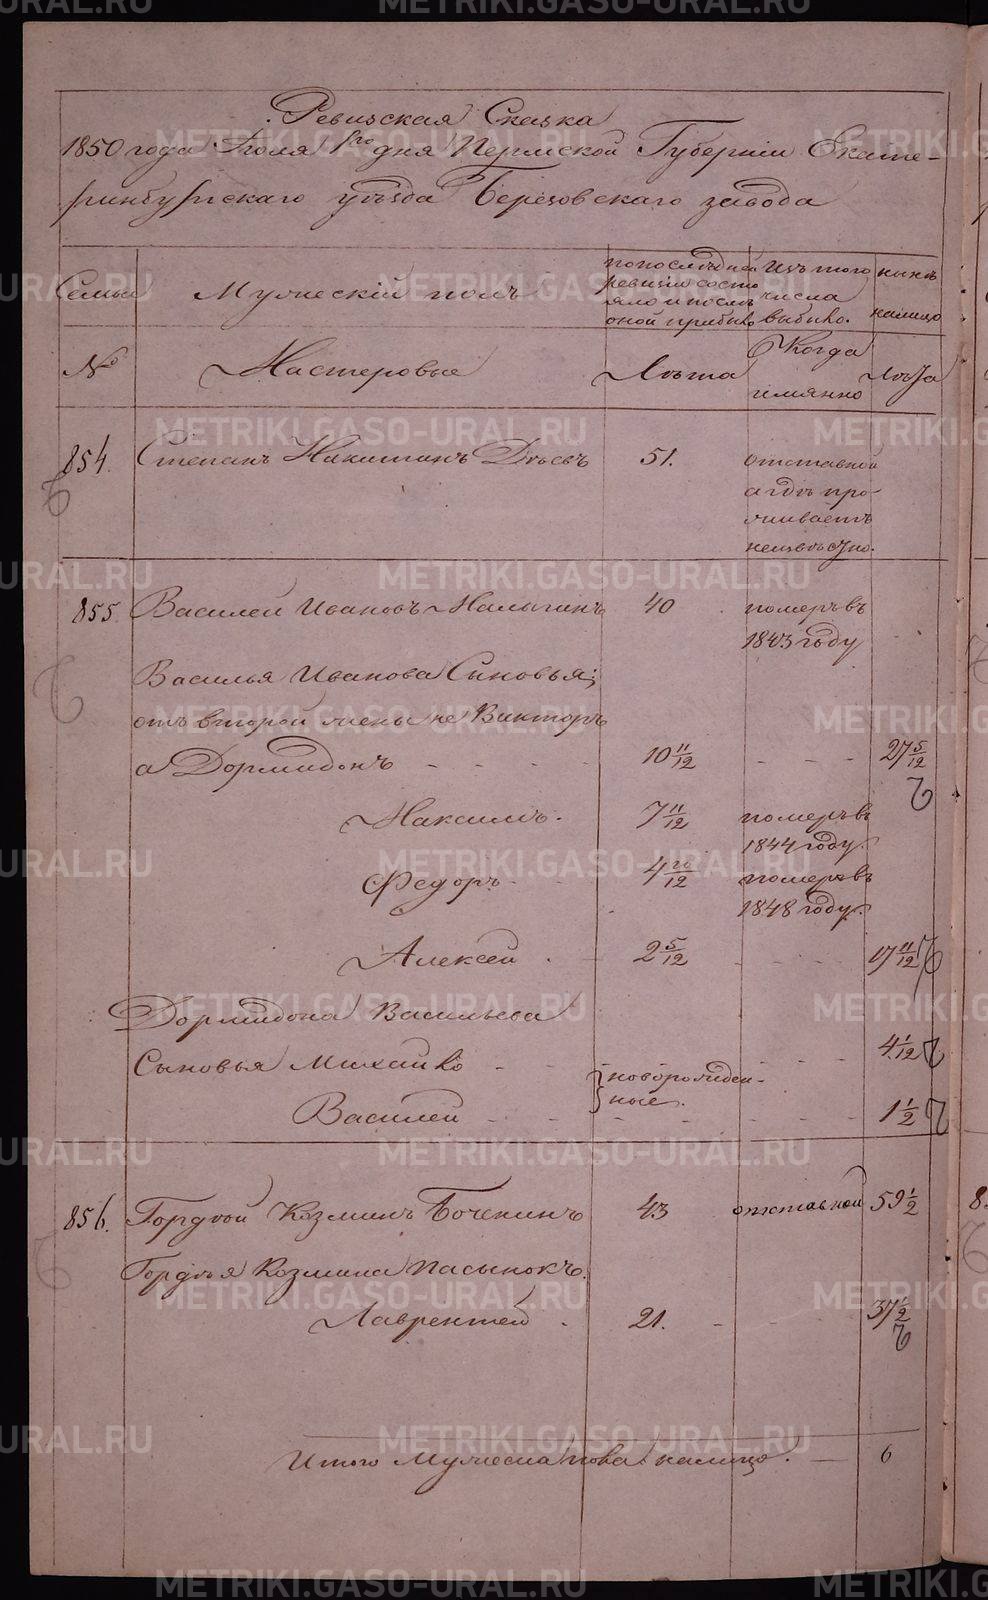 Ревизская Сказка
1850 года Июля 1го дня Пермской Губернии Екате-
ринбургскаго уѣзда Березовскаго завода
Семьи
Мужескій полъ
по последней
ревизіи состо
яло и послѣ
оной прибыло
Изъ того
числа
выбыло.
нынѣ
налицо
№
Мастеровые
Лѣта
Когда
имянно
Лѣта
854. Степанъ Никитинъ 51. отставной
а гдѣ про-
живаетъ
неизвѣстно.
855. Василей Ивановъ Малыгинъ 40 померъ въ
1843 году
Василья Иванова Сыновья;
отъ второй жены не Викторъ
а Дормидонъ - - - - 10 11/12 - - - 27 5/12
Максимъ. 7 11/12 померъ въ
1844 году.
Федоръ 4 10/12 померъ въ
1848 году.
Алексей 2 5/12 - - - 17 11/12
Дормидона Васильева
Сыновья Михайло - - - - - 4 1/12
новорожден-
ные.
Василей - - - - - - - 1 1/2
856. Гордей Козминъ Боченинъ 43 отставной 59 1/2
Гордѣя Козмина пасынокъ.
Лаврентей 21. - - - 37 1/2
Итого Мужеска пола налицо. — 6
METRIKI.GASO-URAL.RU